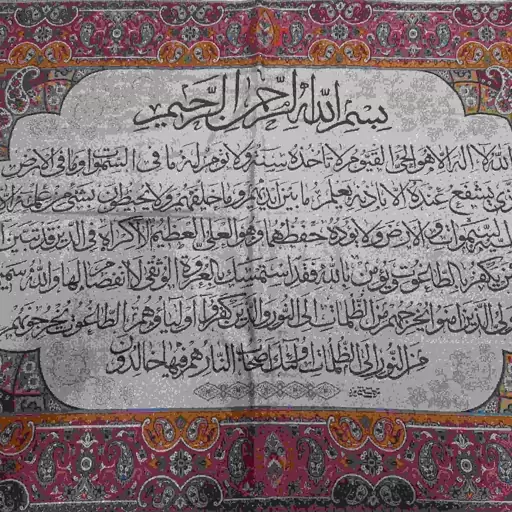 بسم الله الرحمن الرحيم
الله لا اله الا هو الحي القيوم لا تاخذه سنة ولا نوم له ما في السموات وما في الارض
يشفع عنده الا باذنه يعلم ما بين ايديهم وما خلفهم ولا يحيطون بشيء من علمه
السموات والارض ولا يوده حفظهما وهو العلي العظيم لا اكراه في الدين قد تبين
يكفر بالطاغوت ويؤمن بالله فقد استمسك بالعروة الوثقى لا انفصام لها والله
الذين امنوا يخرجهم من الظلمات الى النور والذين كفروا اولياؤهم الطاغوت يخرجونهم
من النور الى الظلمات اولئك اصحاب النار هم فيها خالدون